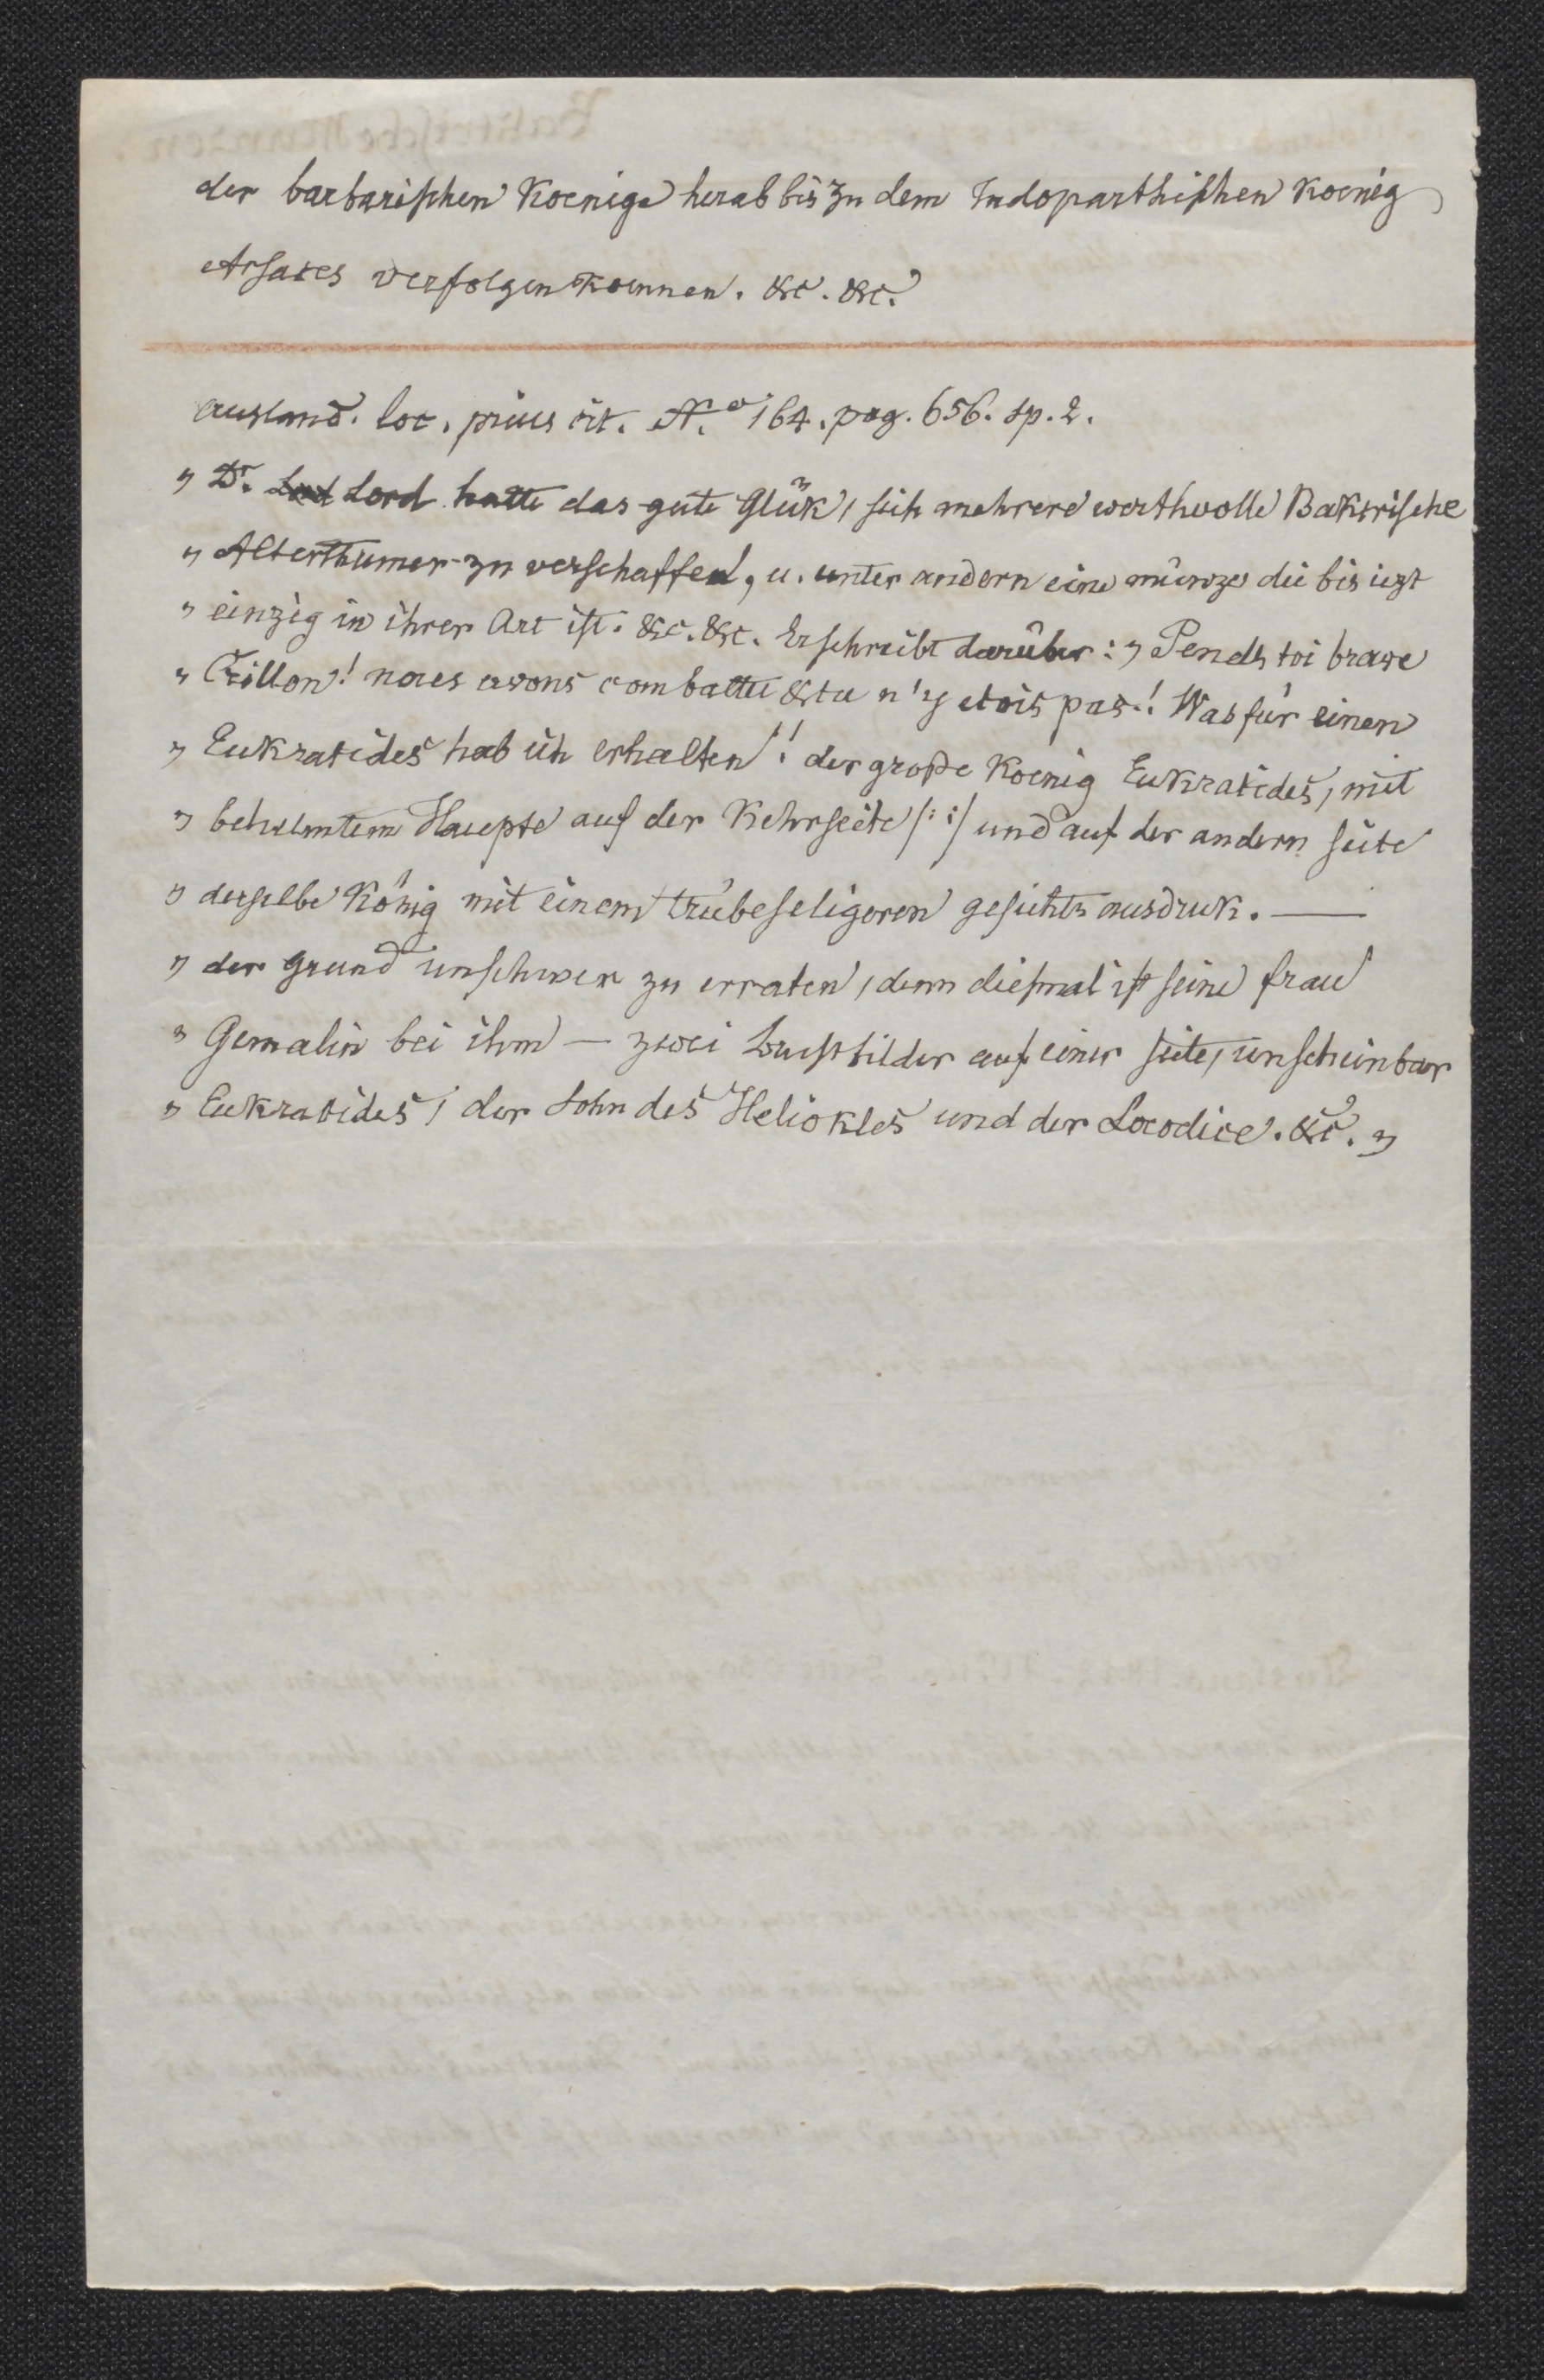 der barbarischen Koenige herab bis zu dem Indoparthischen Koenig
Arsaces verfolgen koennen. &c. &c.
Ausland. loc. prius cit. N.o 164. pag. 656. sp. 2.
„ Dr. Lord hatte das gute Glük, sich mehrere werthvolle Baktrische
„ Alterthumer zu verschaffen, u. unter andern eine münze die bis iezt
„ einzig in ihrer Art ist. &c. &c. Er schreibt darüber: „ Pends toi brave
„ Crillon! nous avons combattu & tu n'y etois pas.! Was für einen
„ Eukratides hab ich erhalten! der große Koenig Eukratides, mit
„ behelmtem Haupte auf der Kehrseite /: :/ und auf der andern seite
„ derselbe König mit einem trübeseligeren gesichts ausdruk. —
„ der grund unschwer zu erraten, denn diesmal ist seine frau
„ Gemalin bei ihm — zwei Brustbilder auf einer seite, unscheinbar
„ Eukratides, der Sohn des Heliokles und der Laodice. &c. „